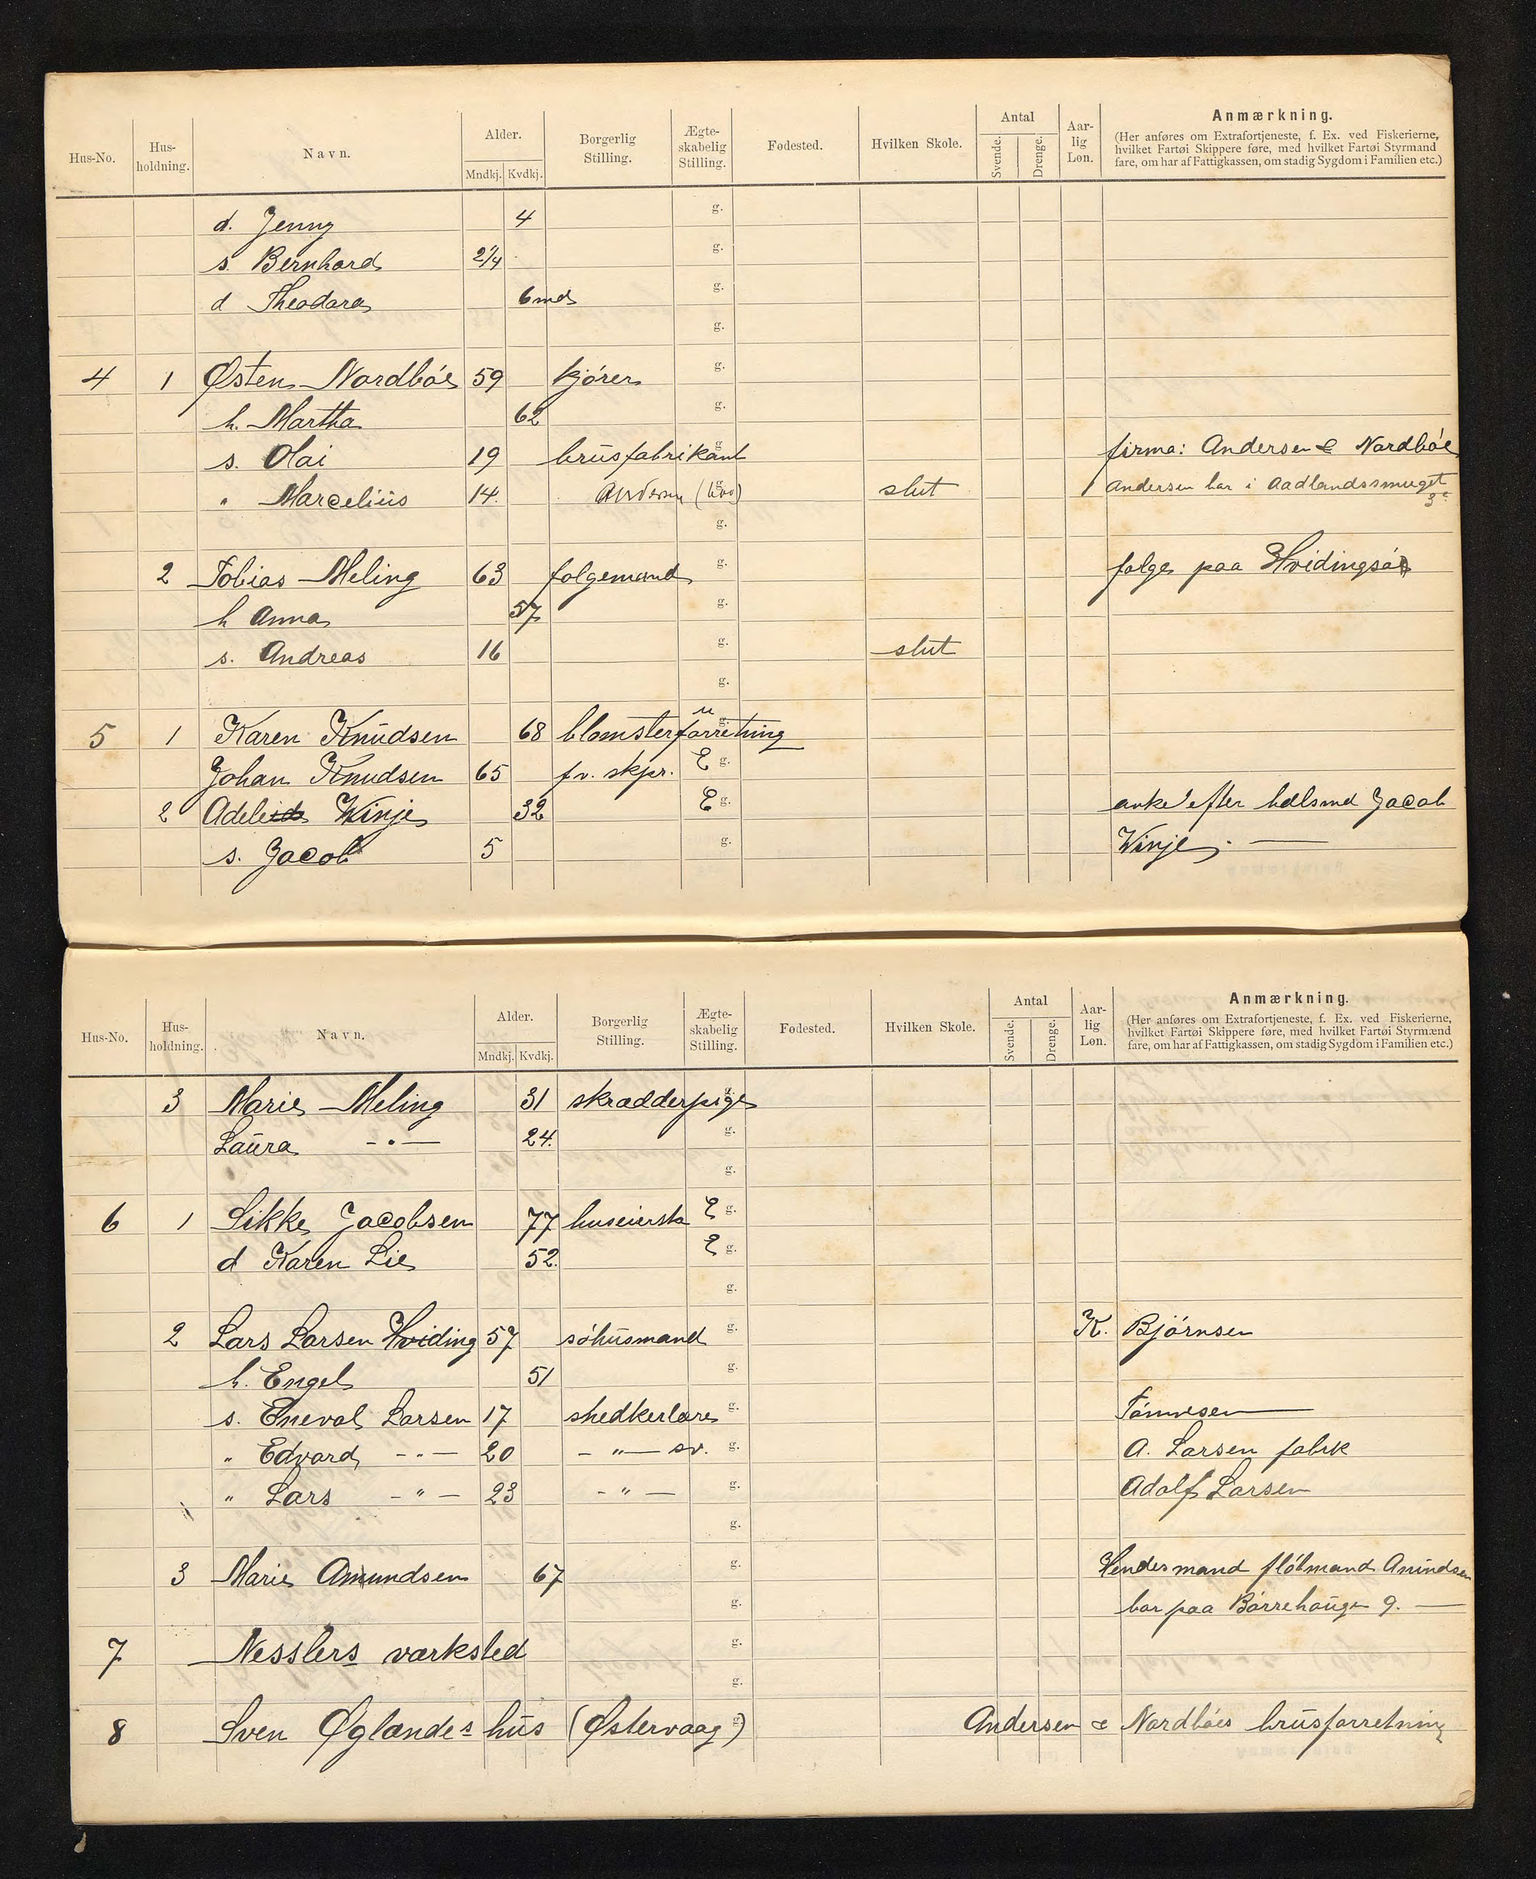 Hus-No. Hus-holdning. Navn. Alder. Mndkj. Kvdkj. Borgerlig Stilling. Ægte-skabelig Stilling. Fødested. Hvilken Skole. Antal Svende. Drenge. Aar-lig Løn. Anmærkning.
(Her anføres om Extrafortjeneste, f. Ex. ved Fiskerierne,
hvilket Fartøi Skippere føre, med hvilket Fartøi Styrmænd
fare, om har af Fattigkassen, om stadig Sygdom i Familien etc.)
d. Jenny 4 g.
s. Bernhard 2 1/4 g.
d Theodora 6 md g.
g.
4 1 Østen Nordbøe 59 kjører g.
h. Martha 62 g.
s. Olai 19 brusfabrikant g. firma: Andersen & Nordbøe
" Marcelius 14. Andersen g. slut Andersen bor i Aadlandssmuget 3
g.
2 Tobias Meling 63 følgemand g. følge paa Hvidingsø
h Anna 57 g.
s. Andreas 16 g. slut
g.
5 1 Karen Knudsen 68 blomsterforretning u g.
Johan Knudsen 65 fv. skpr. E g.
2 Adele Winje 32 E g. enke efter hdlsmd Jacob
s. Jacob 5 g. Winje. —
Hus-No. Hus-holdning. Navn. Alder. Mndkj. Kvdkj. Borgerlig Stilling. Ægte-skabelig Stilling. Fødested. Hvilken Skole. Antal Svende. Drenge. Aar-lig Løn. Anmærkning.
(Her anføres om Extrafortjeneste, f. Ex. ved Fiskerierne,
hvilket Fartøi Skippere føre, med hvilket Fartøi Styrmænd
fare, om har af Fattigkassen, om stadig Sygdom i Familien etc.)
3 Marie Meling 31 skrædderpige g.
Laura - " - 24. g.
g.
6 1 Sikke Jacobsen 77 huseierska E g.
d Karen Lie 52. E g.
g.
2 Lars Larsen Hviding 57 søhusmand g. K. Bjørnsen
h. Engel 51 g.
s. Eneval Larsen 17 g. Tønnesen —
" Edvard - " - 20 - " - sv. g. A. Larsen fabrk
" Lars - " - 23 - " - g. Adolf Larsen
g.
3 Marie Amundsen 67 g. Hendes mand fløtmand Amundsen
g. bor paa Børrehaugen 9. —
7 Nesslers værksted g.
g.
8 Sven Øglændes hus (Østervaag) g. Andersen & Nordbøes brusforretning